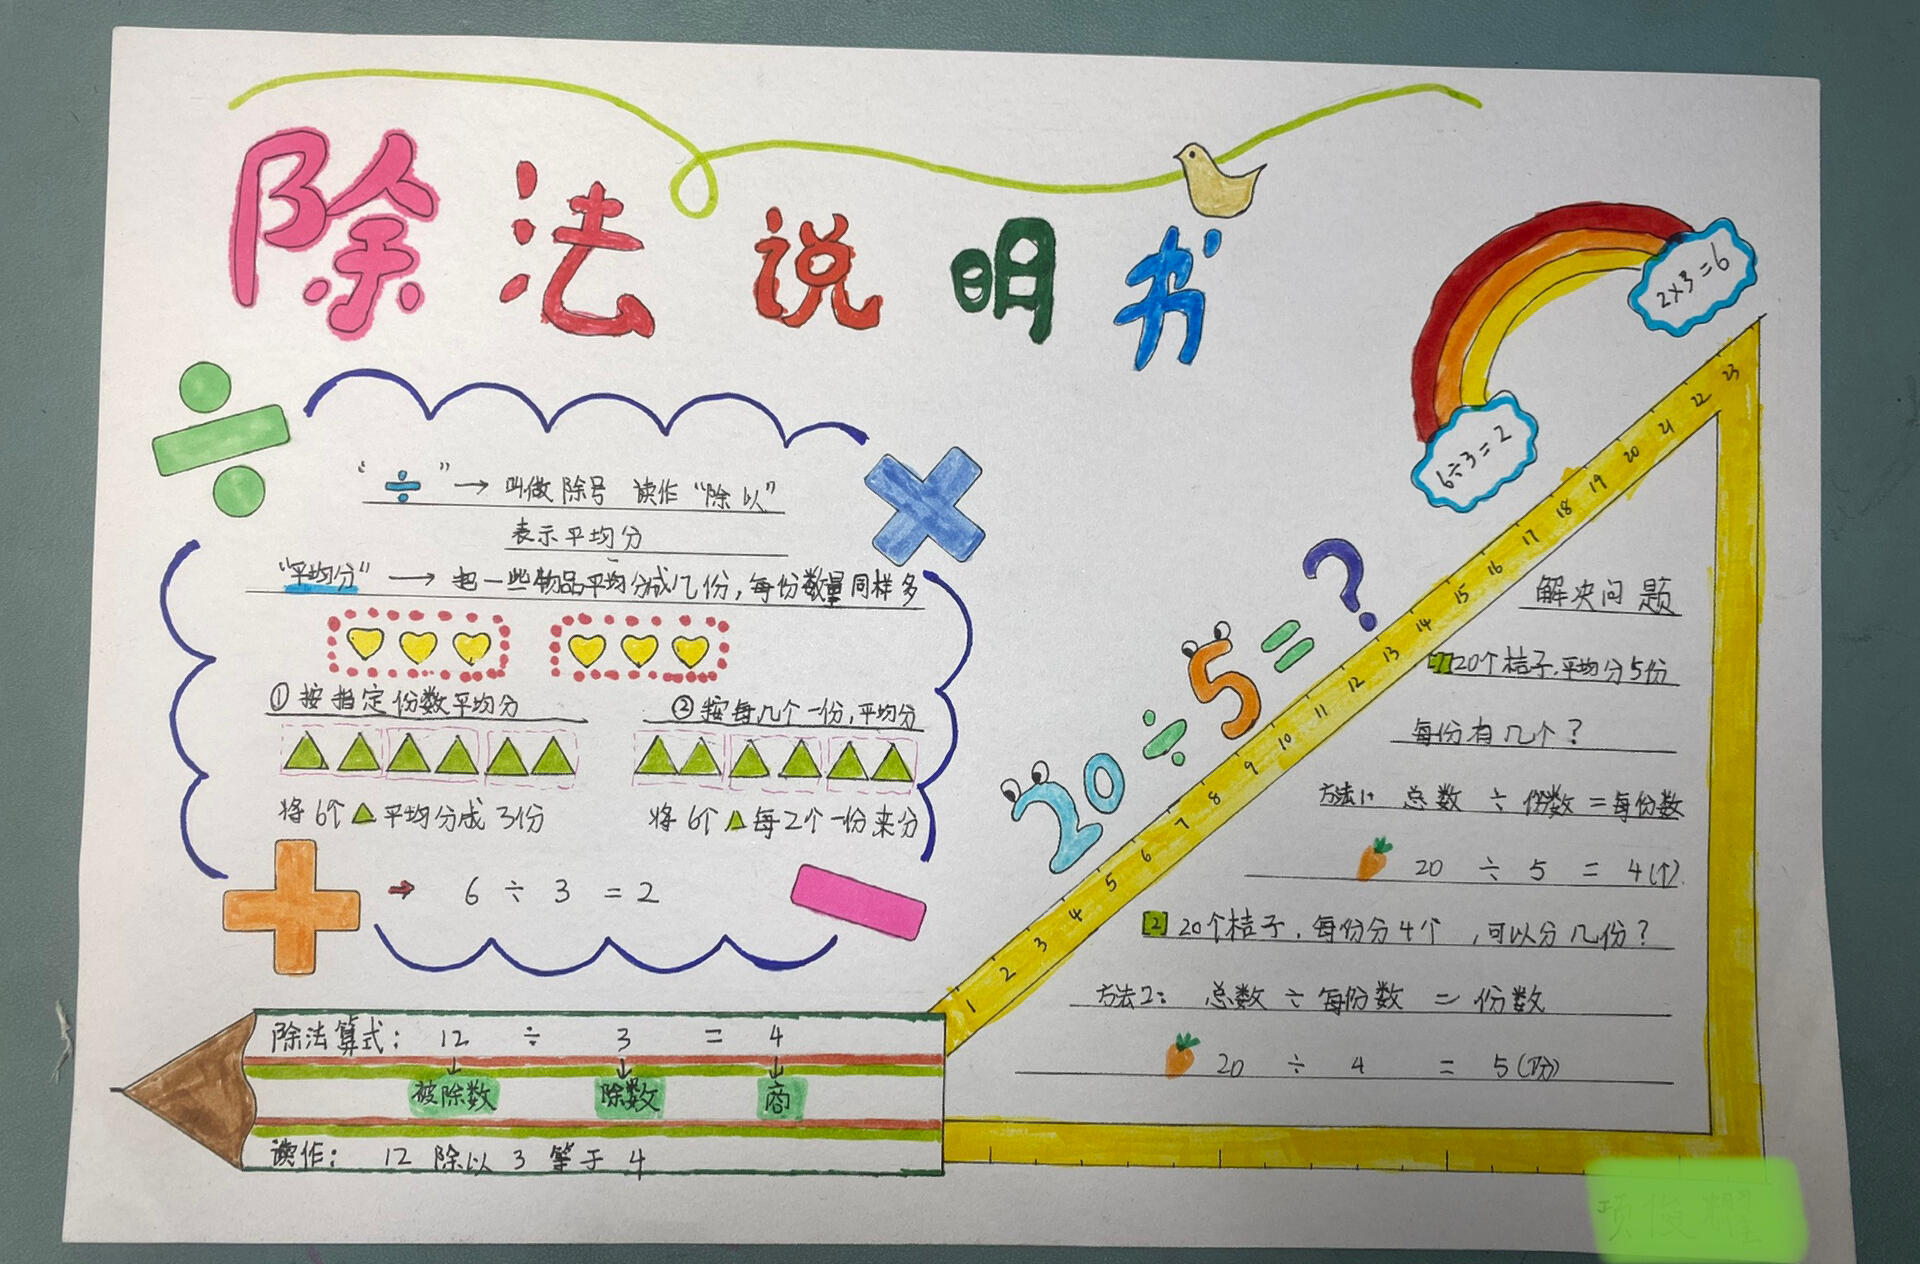 除法说明书
2×3=6
6÷3=2
“÷”→叫做除号 读作“除以”
表示平均分
“平均分”→把一些物品平均分成几份,每份数量同样多
①按指定份数平均分
②按每几个一份,平均分
将6个▲平均分成3份
将6个▲每2个一份来分
→ 6÷3=2
20÷5=?
1 2 3 4 5 6 7 8 9 10 11 12 13 14 15 16 17 18 19 20 21 22 23
解决问题
1 20个桔子.平均分5份
每份有几个?
方法1: 总数÷份数=每份数
20÷5=4(个)
2 20个桔子,每份分4个,可以分几份?
方法2: 总数÷每份数=份数
20÷4=5(份)
除法算式: 12÷3=4
被除数 除数 商
读作: 12除以3等于4